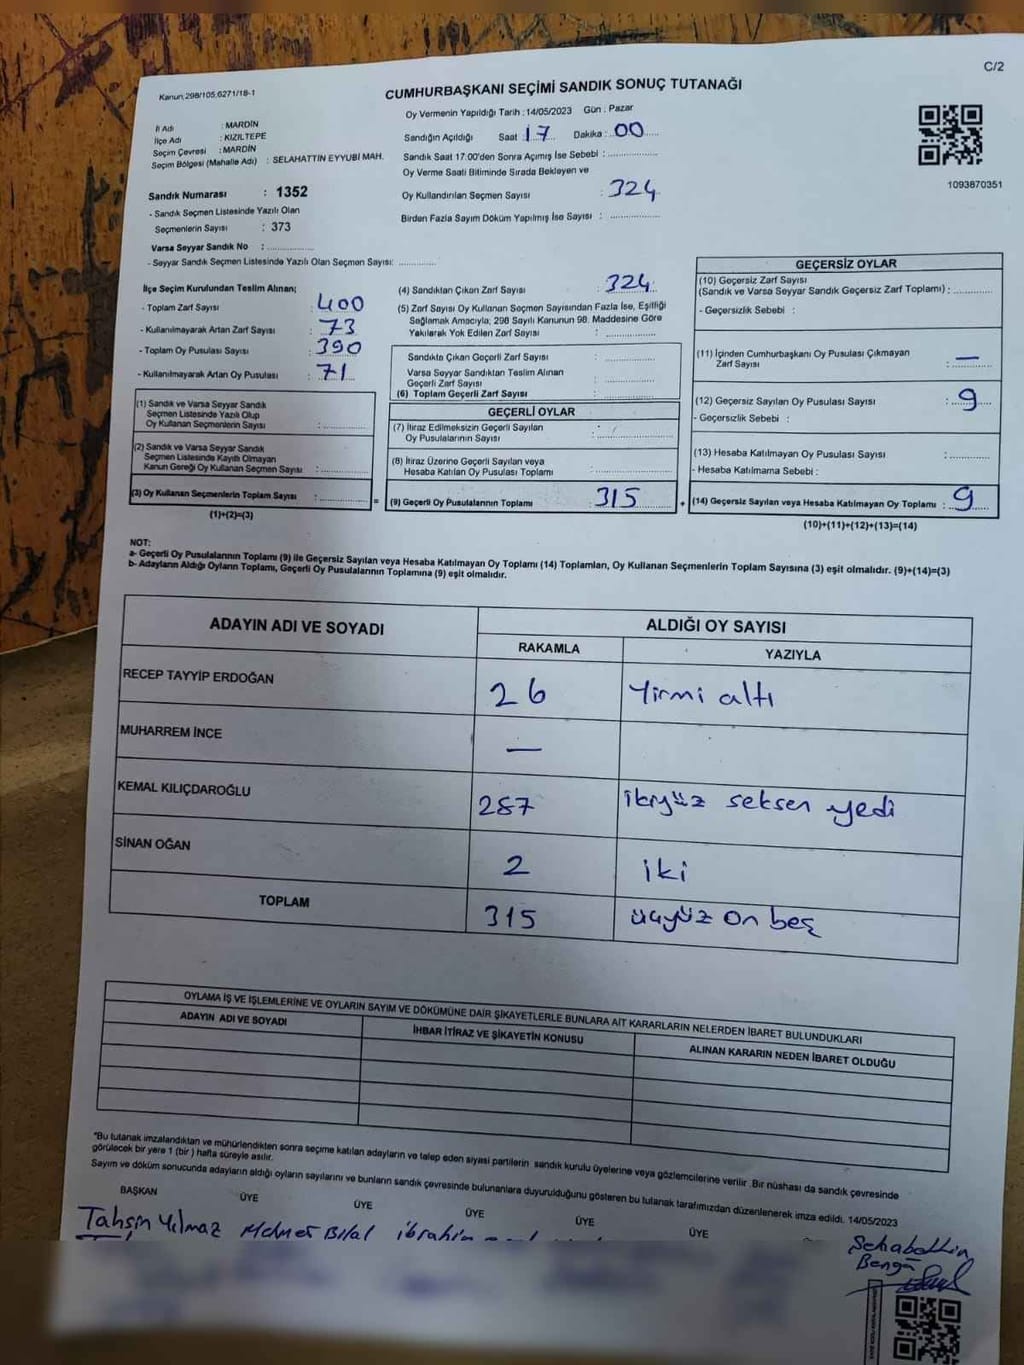 C/2
Kanun:298/105,6271/18-1
CUMHURBAŞKANI SEÇİMİ SANDIK SONUÇ TUTANAĞI
İl Adı : MARDİN
İlçe Adı : KIZILTEPE
Seçim Çevresi : MARDİN
Seçim Bölgesi (Mahalle Adı) : SELAHATTİN EYYUBİ MAH.
Oy Vermenin Yapıldığı Tarih :14/05/2023 Gün : Pazar
Sandığın Açıldığı Saat : 17 Dakika : 00
Sandık Saat 17:00'den Sonra Açımış İse Sebebi :
Oy Verme Saati Bitiminde Sırada Bekleyen ve
Oy Kullandırılan Seçmen Sayısı : 324
Birden Fazla Sayım Döküm Yapılmış İse Sayısı :
1093870351
Sandık Numarası : 1352
- Sandık Seçmen Listesinde Yazılı Olan
Seçmenlerin Sayısı : 373
Varsa Seyyar Sandık No :
- Seyyar Sandık Seçmen Listesinde Yazılı Olan Seçmen Sayısı:
İlçe Seçim Kurulundan Teslim Alınan;
- Toplam Zarf Sayısı : 400
- Kullanılmayarak Artan Zarf Sayısı : 73
- Toplam Oy Pusulası Sayısı : 390
- Kullanılmayarak Artan Oy Pusulası : 71
(1) Sandık ve Varsa Seyyar Sandık
Seçmen Listesinde Yazılı Olup
Oy Kullanan Seçmenlerin Sayısı :
(2) Sandık ve Varsa Seyyar Sandık
Seçmen Listesinde Kayıtlı Olmayan
Kanun Gereği Oy Kullanan Seçmen Sayısı :
(3) Oy Kullanan Seçmenlerin Toplam Sayısı : =
(1)+(2)=(3)
(4) Sandıktan Çıkan Zarf Sayısı : 324
(5) Zarf Sayısı Oy Kullanan Seçmen Sayısından Fazla İse, Eşitliği
Sağlamak Amacıyla, 298 Sayılı Kanunun 98. Maddesine Göre
Yakılarak Yok Edilen Zarf Sayısı :
Sandıkta Çıkan Geçerli Zarf Sayısı :
Varsa Seyyar Sandıktan Teslim Alınan
Geçerli Zarf Sayısı :
(6) Toplam Geçerli Zarf Sayısı :
GEÇERLİ OYLAR
(7) İtiraz Edilmeksizin Geçerli Sayılan
Oy Pusulalarının Sayısı :
(8) İtiraz Üzerine Geçerli Sayılan veya
Hesaba Katılan Oy Pusulası Toplamı :
(9) Geçerli Oy Pusulalarının Toplamı : 315 +
GEÇERSİZ OYLAR
(10) Geçersiz Zarf Sayısı
(Sandık ve Varsa Seyyar Sandık Geçersiz Zarf Toplamı) :
- Geçersizlik Sebebi :
(11) İçinden Cumhurbaşkanı Oy Pusulası Çıkmayan
Zarf Sayısı : —
(12) Geçersiz Sayılan Oy Pusulası Sayısı : 9
- Geçersizlik Sebebi :
(13) Hesaba Katılmayan Oy Pusulası Sayısı :
- Hesaba Katılmama Sebebi :
(14) Geçersiz Sayılan veya Hesaba Katılmayan Oy Toplamı : 9
(10)+(11)+(12)+(13)=(14)
NOT:
a- Geçerli Oy Pusulalarının Toplamı (9) ile Geçersiz Sayılan veya Hesaba Katılmayan Oy Toplamı (14) Toplamları, Oy Kullanan Seçmenlerin Toplam Sayısına (3) eşit olmalıdır. (9)+(14)=(3)
b- Adayların Aldığı Oyların Toplamı, Geçerli Oy Pusulalarının Toplamına (9) eşit olmalıdır.
ADAYIN ADI VE SOYADI ALDIĞI OY SAYISI
RAKAMLA YAZIYLA
RECEP TAYYİP ERDOĞAN 26 Yirmi altı
MUHARREM İNCE —
KEMAL KILIÇDAROĞLU 287 ikiyüz seksen yedi
SİNAN OĞAN 2 iki
TOPLAM 315 üçyüz on beş
OYLAMA İŞ VE İŞLEMLERİNE VE OYLARIN SAYIM VE DÖKÜMÜNE DAİR ŞİKAYETLERLE BUNLARA AİT KARARLARIN NELERDEN İBARET BULUNDUKLARI
ADAYIN ADI VE SOYADI İHBAR İTİRAZ VE ŞİKAYETİN KONUSU ALINAN KARARIN NEDEN İBARET OLDUĞU
*Bu tutanak imzalandıktan ve mühürlendikten sonra seçime katılan adayların ve talep eden siyasi partilerin sandık kurulu üyelerine veya gözlemcilerine verilir .Bir nüshası da sandık çevresinde
görülecek bir yere 1 (bir ) hafta süreyle asılır.
Sayım ve döküm sonucunda adayların aldığı oyların sayılarını ve bunların sandık çevresinde bulunanlara duyurulduğunu gösteren bu tutanak tarafımızdan düzenlenerek imza edildi. 14/05/2023
BAŞKAN ÜYE ÜYE ÜYE ÜYE ÜYE
Tahsin Yılmaz Mehmet Bilal ibrahim
Sehabettin